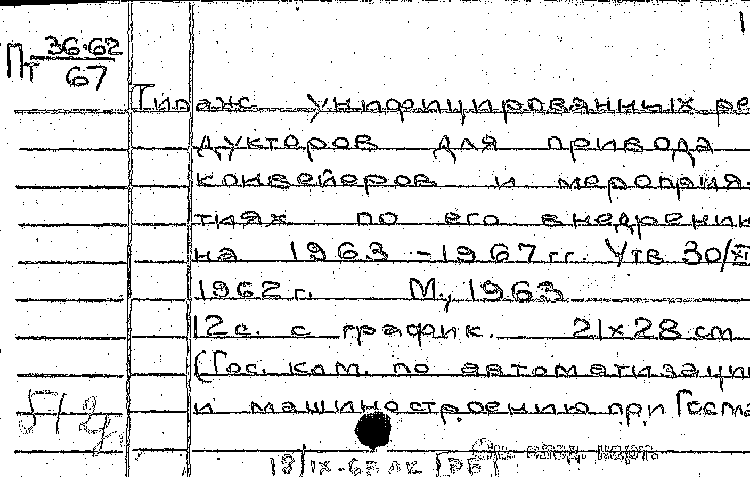 1
Пт 36-62
67
Типаж унифицированных ре
дукторов для привода
конвейеров и мероприя-
тиях по его внедрению
на 1963 - 1967 гг. Утв 30/XI
1962 г. М., 1963
12с. с график. 21x28 cm
(Гос. ком. по автоматизации
и машиностроению при Госпл
См. влад. карт.
18/IX-63 лк [РБ]